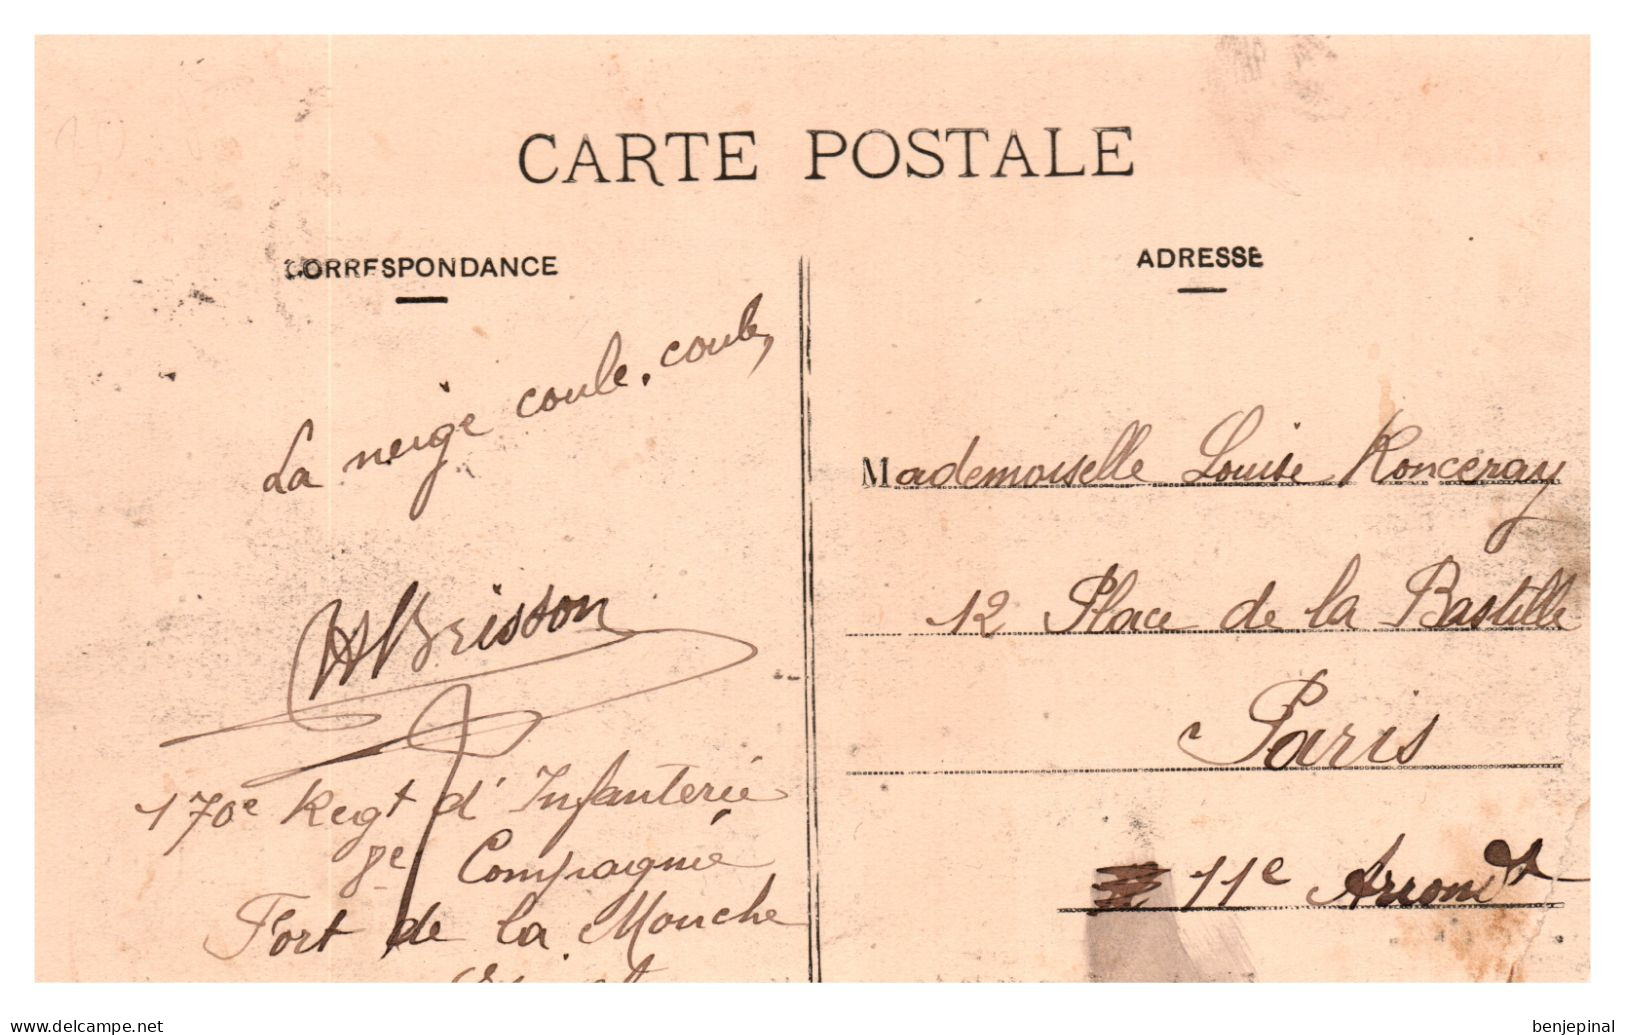 CARTE POSTALE
CORRESPONDANCE
La neige coule, coule,
HBrisson
170e Regt d'Infanterie
8e Compagnie
Fort de la Mouche
ADRESSE
Mademoiselle Louise Ronceray
12 Place de la Bastille
Paris
11e Arrondt
www.delcampe.net
benjepinal